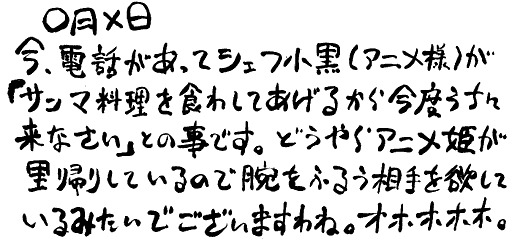 〇月×日
今、電話があってシェフ小黒(アニメ様)が
「サンマ料理を食わしてあげるから今度うちに
来なさい」との事です。どうやらアニメ姫が
里帰りしているので腕をふるう相手を欲して
いるみたいでございますわね。オホホホホ。